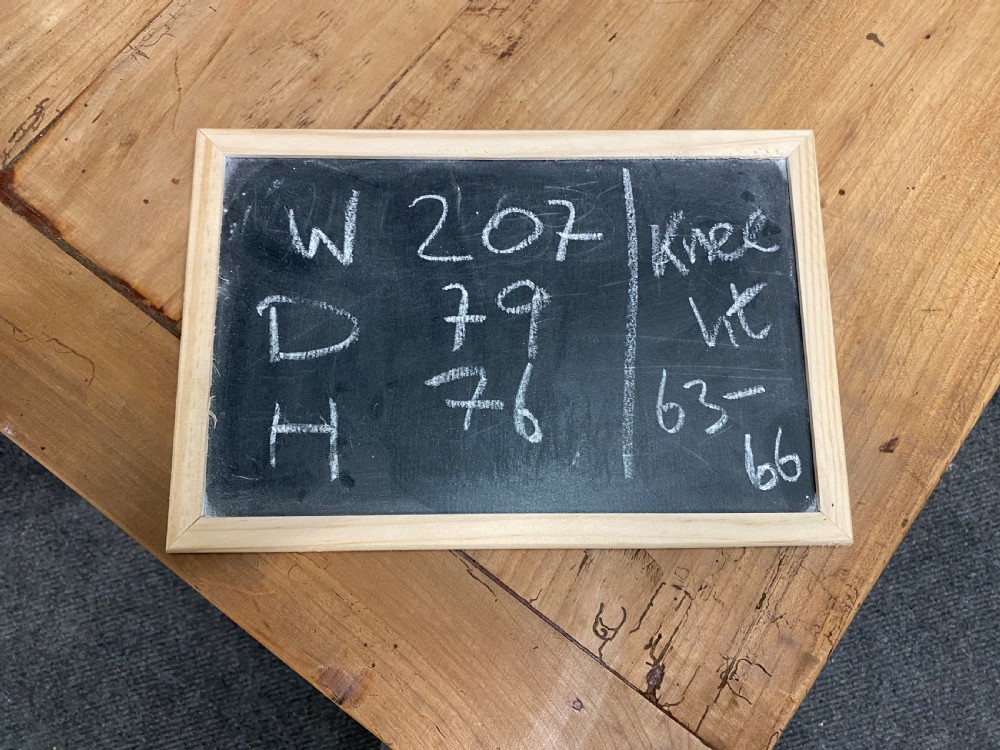 W 207
D 79
H 76
Knee
ht
63-
66